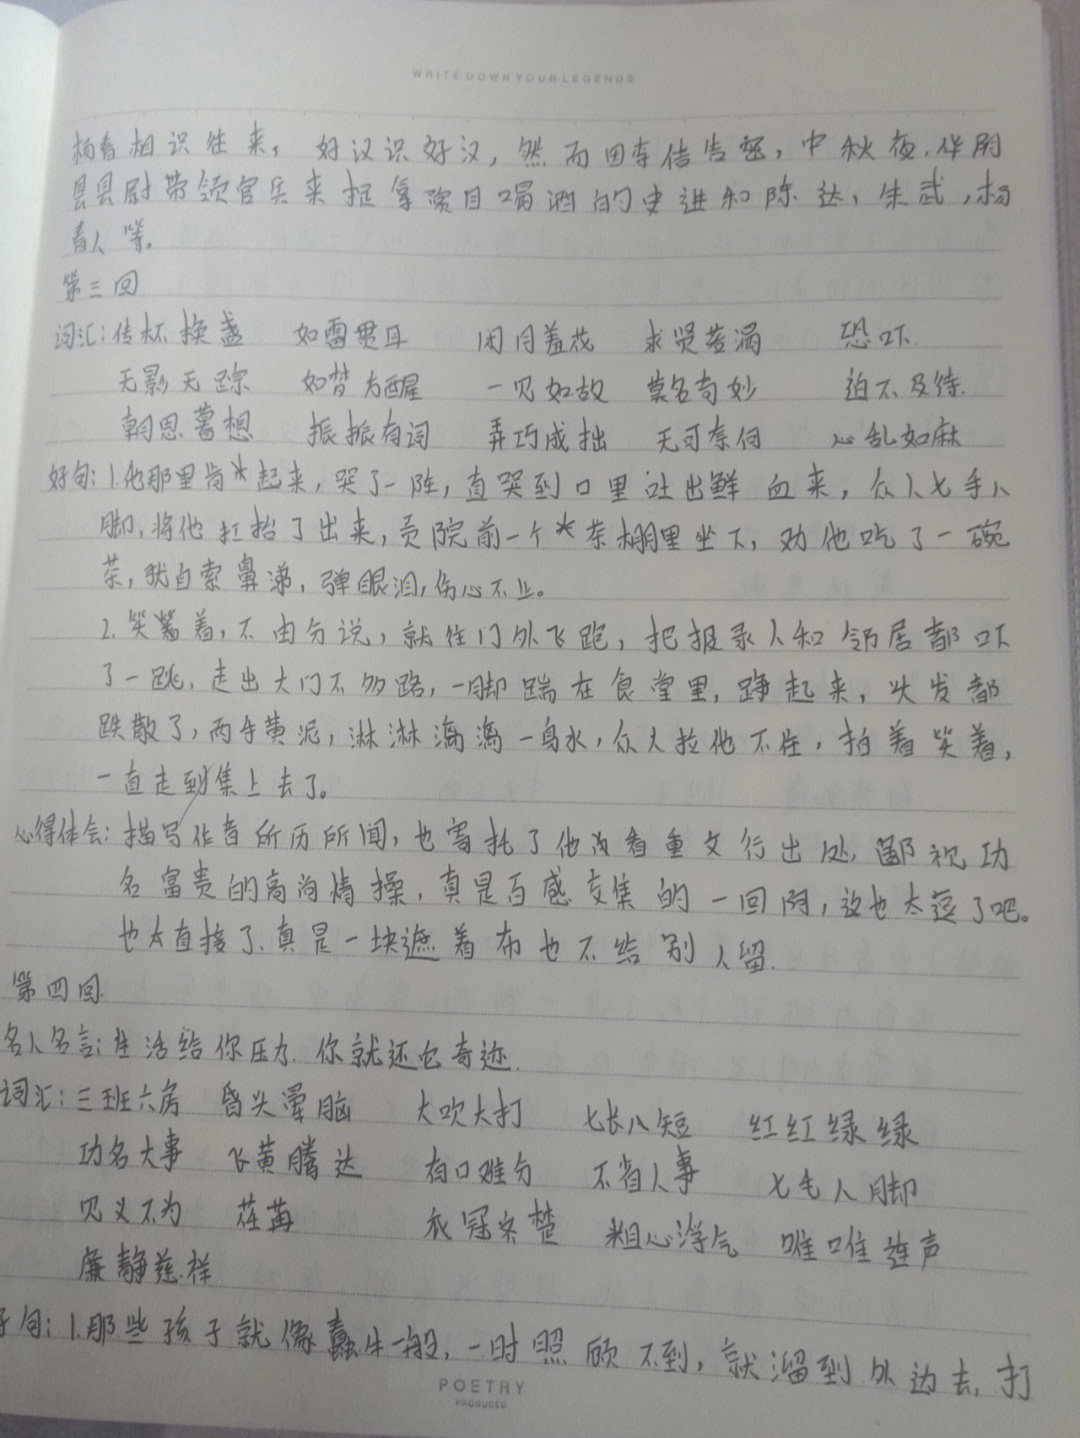 WRITE DOWN YOUR LEGENDS
杨春相识往来，好汉识好汉，然而因有信告密，中秋夜，华阴
县县尉带领官兵来捉拿 喝酒的史进和陈达，朱武，杨
春人等。
第三回
词汇：传杯换盏 如雷贯耳 闭月羞花 求贤若渴 恐吓
无影无踪 如梦方醒 一见如故 莫名奇妙 迫不及待
朝思暮想 振振有词 弄巧成拙 无可奈何 心乱如麻
好句：1.他那里肯起来，哭了一阵，直哭到口里吐出鲜血来，众人七手八
脚，将他扛抬了出来，贡院前一个茶棚里坐下，劝他吃了一碗
茶，犹自索鼻涕，弹眼泪，伤心不止。
2.笑着，不由分说，就往门外飞跑，把报录人和邻居都吓
了一跳，走出大门不多路，一脚踹在食堂里，挣起来，头发都
跌散了，两手黄泥，淋淋漓漓一身水，众人拉他不住，拍着笑着，
一直走到集上去了。
心得体会：描写作者所历所闻，也寄托了他没看重文行出处，鄙视功
名富贵的高尚情操，真是百感交集的一回阿，这也太逗了吧。
也太直接了，真是一块遮着布也不给别人留
第四回
名人名言：生活给你压力，你就还它奇迹
词汇：三班六房 昏头晕脑 大吹大打 七长八短 红红绿绿
功名大事 飞黄腾达 有口难分 不省人事 七毛八脚
见义不为 荏苒 衣冠齐楚 粗心浮气 唯唯连声
廉静慈祥
好句：1.那些孩子就像蠢牛一般，一时照顾不到，就溜到外边去，打
POETRY
PRODUCED